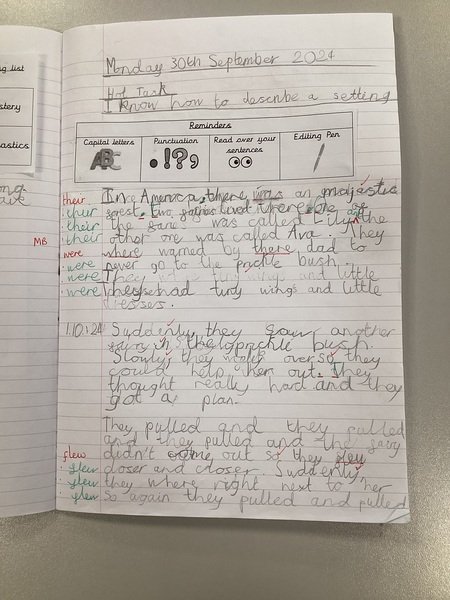 ng list
stery
astics
Monday 30th September 2024
Hot Task
I know how to describe a setting
Reminders
Capital letters
Punctuation
Read over your sentences
Editing Pen
ABC
. ! ? ,
their
their
their
their
MB
were
were
were
were
In America, there was an majestic
forest. two fairies lived there. One of
the faries was called Lilly, the
other one was called Ava. They
where warned by there dad to
never go to the prickle bush.
They had tiny wings and little
dresses.
1.10.24
Suddenly, they saw another
fairy in the prickle bush.
Slowly, they over so they
could help her out. They
thought really hard and they
got a plan.
They pulled and they pulled
and they pulled and the fairy
didn't come out so they flew
closer and closer. Suddenly,
they where right next to her
so again they pulled and pulled
flew
flew
flew
flew